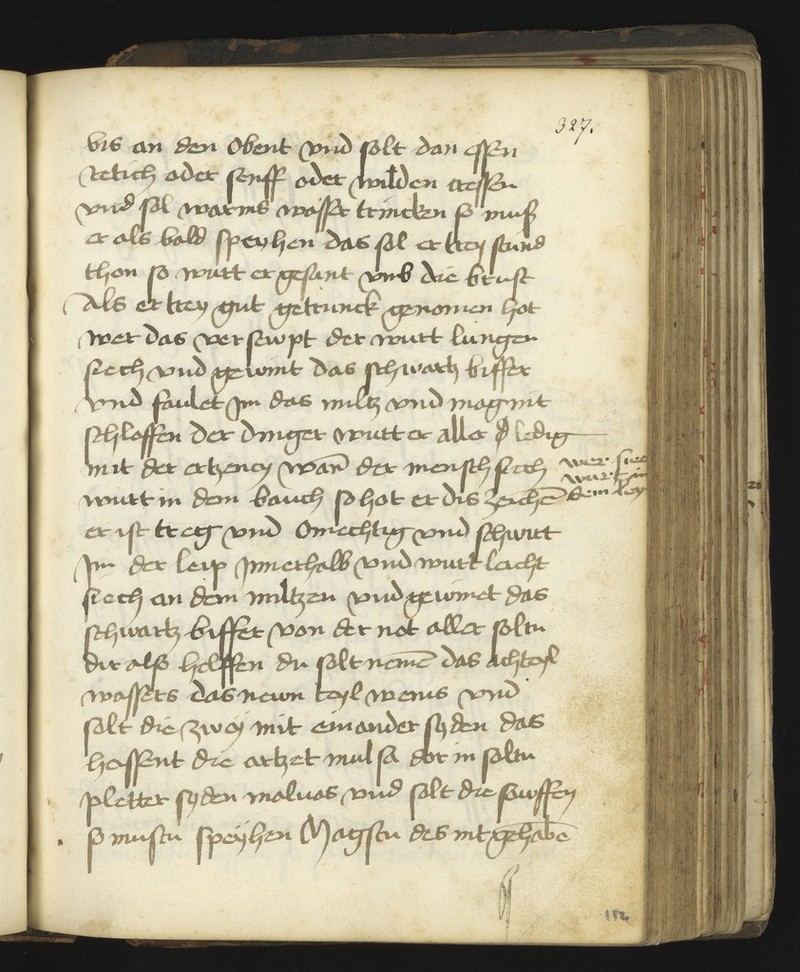 327.
bis an den Obent vnd solt dan essen
Retich oder senff oder wilden cressen
vnd sol warms wasser trincken so muß
er als bald speyhen das sol er trey stund
thon so wurt er gesunt vmb die brust
Als er trey gut getrunck genomen hot
wer das versewpt der wurt lungen
siech vnd gewint das schwartz bisser
vnd faulet Jm das miltz vnd mag nit
schlaffen der dinger wurt er aller ledig
mit der ertzeney wan̄ der mensch siech
wer siec
wurt in
dem ley
wurt in dem bauch so hot er dis zeichē
er ist treg vnd Omechtig vnd schwirt
Jm der leip Jnnerhalb vnd wurt leicht
siech an dem miltzen vnd gewinet das
schwartz bisser von der not aller soltu
dir also helffen du solt nemē das achteyl
wassers das newn teyl weins vnd
solt die zwey mit einander syden das
heissent die artzet mulsa dor in soltu
pletter syden maluas vnd solt die sowffen
so mustu speyhen Magstu des nit gehabē
152